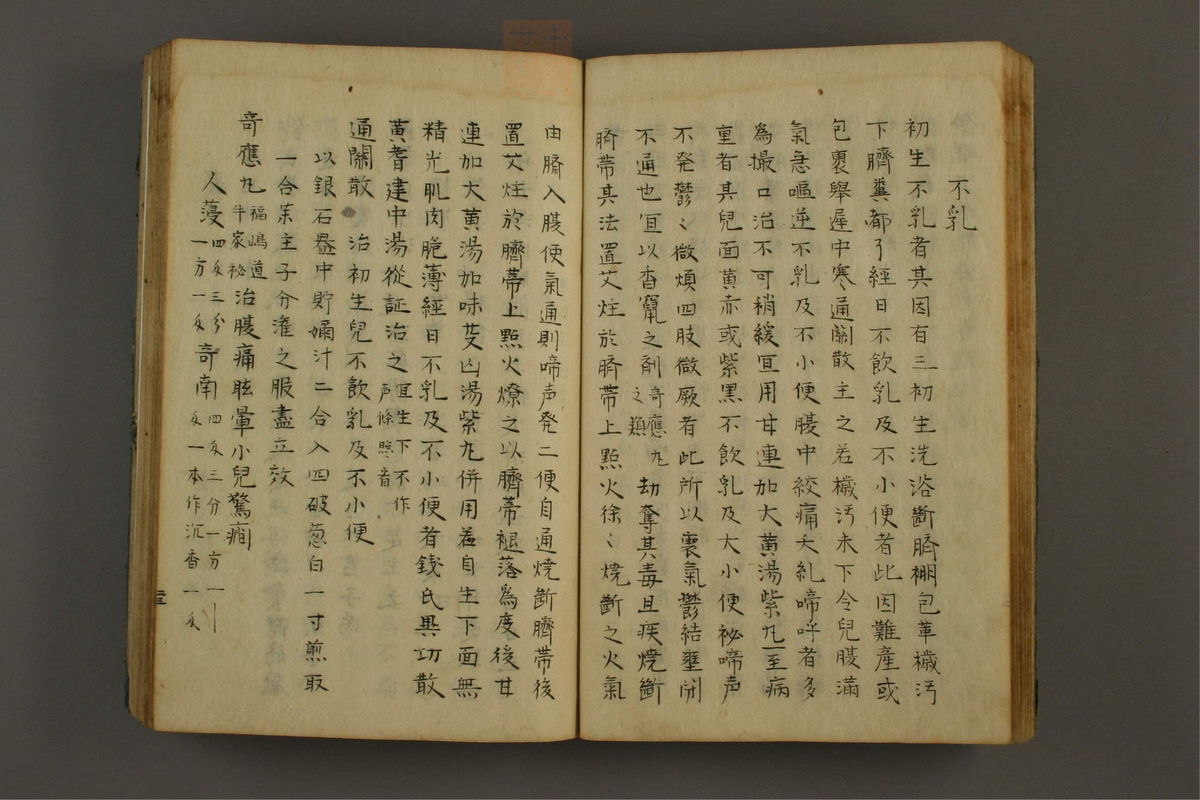 不乳
初生不乳者其因有三初生洗浴斷臍褓包革穢汚
下臍糞都了經日不飲乳及不小便者此因難產或
包裹舉遲中寒通關散主之若穢汚未下令兒腹滿
氣急嘔逆不乳及不小便腹中絞痛夭糺啼呼者多
爲撮口治不可稍緩宜用甘連加大黃湯紫丸至病
重者其兒面黃亦或紫黑不飲乳及大小便祕啼声
不発鬱〻微煩四肢微厥者此所以裏氣鬱結壅閉
不通也宜以杳竄之剤奇應丸之類劫奪其毒且疾燒斷
臍帯其法置艾炷於臍帯上點火徐〻燒斷之火氣
由臍入腹便氣通則啼声発二便自通燒斷臍帯後
置艾炷於臍蔕上點火燎之以臍蔕褪落為度後甘
連加大黃湯加味芟凶湯紫丸併用若自生下面無
精光肌肉脆薄經日不乳及不小便者錢氏異功散
黃耆建中湯從証治之宜生下不作声條照音
通關散 治初生兒不飲乳及不小便
以銀石器中貯嬭汁二合入四破葱白一寸煎取
一合余主子分漼之服盡立效
奇應丸福嶋道牛家祕治腹痛眩暈小兒驚癇
人薓四戔三分一方一戔奇南四戔三分一方一戔一本作沉香一戔